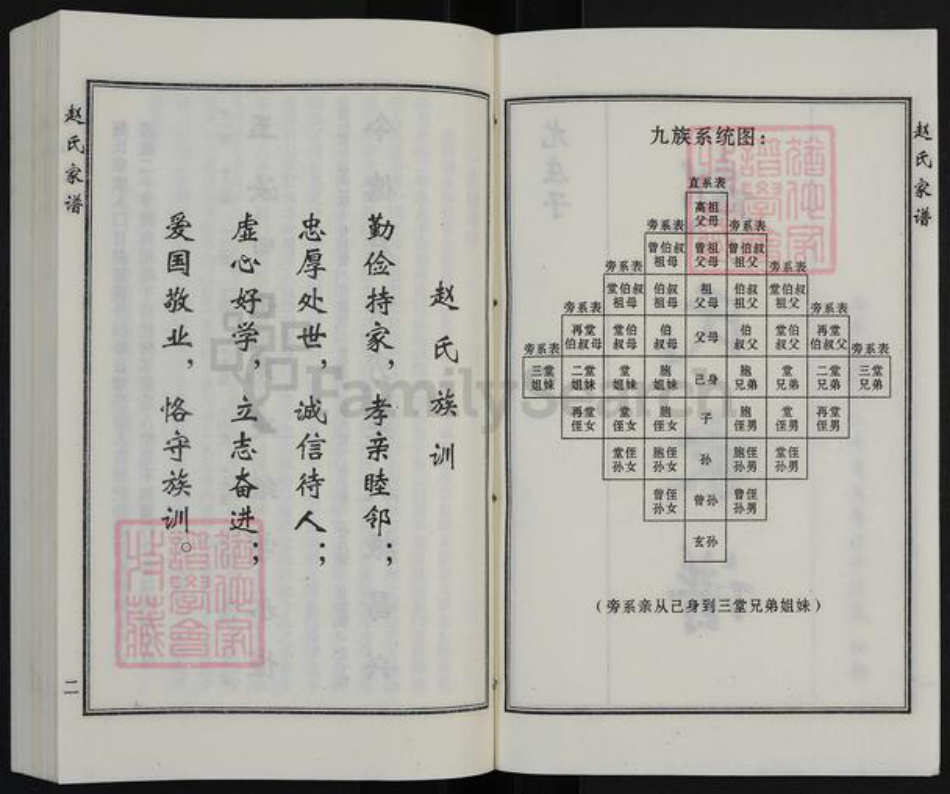 赵氏家谱
赵氏族训
勤俭持家，孝亲睦邻；
忠厚处世，诚信待人；
虚心好学，立志奋进；
爱国敬业，恪守族训。
二
赵氏家谱
九族系统图：
直系表
高祖父母
旁系表 旁系表
曾伯叔祖母 曾祖父母 曾伯叔祖父
旁系表 旁系表
堂伯叔祖母 伯叔祖母 祖父母 伯叔祖父 堂伯叔祖父
旁系表 旁系表
再堂伯叔母 堂伯叔母 伯叔母 父母 伯叔父 堂伯叔父 再堂伯叔父
旁系表 旁系表
三堂姐妹 二堂姐妹 堂姐妹 胞姐妹 己身 胞兄弟 堂兄弟 二堂兄弟 三堂兄弟
再堂侄女 堂侄女 胞侄女 子 胞侄男 堂侄男 再堂侄男
堂侄孙女 胞侄孙女 孙 胞侄孙男 堂侄孙男
曾侄孙女 曾孙 曾侄孙男
玄孙
（旁系亲从己身到三堂兄弟姐妹）
FamilySearch